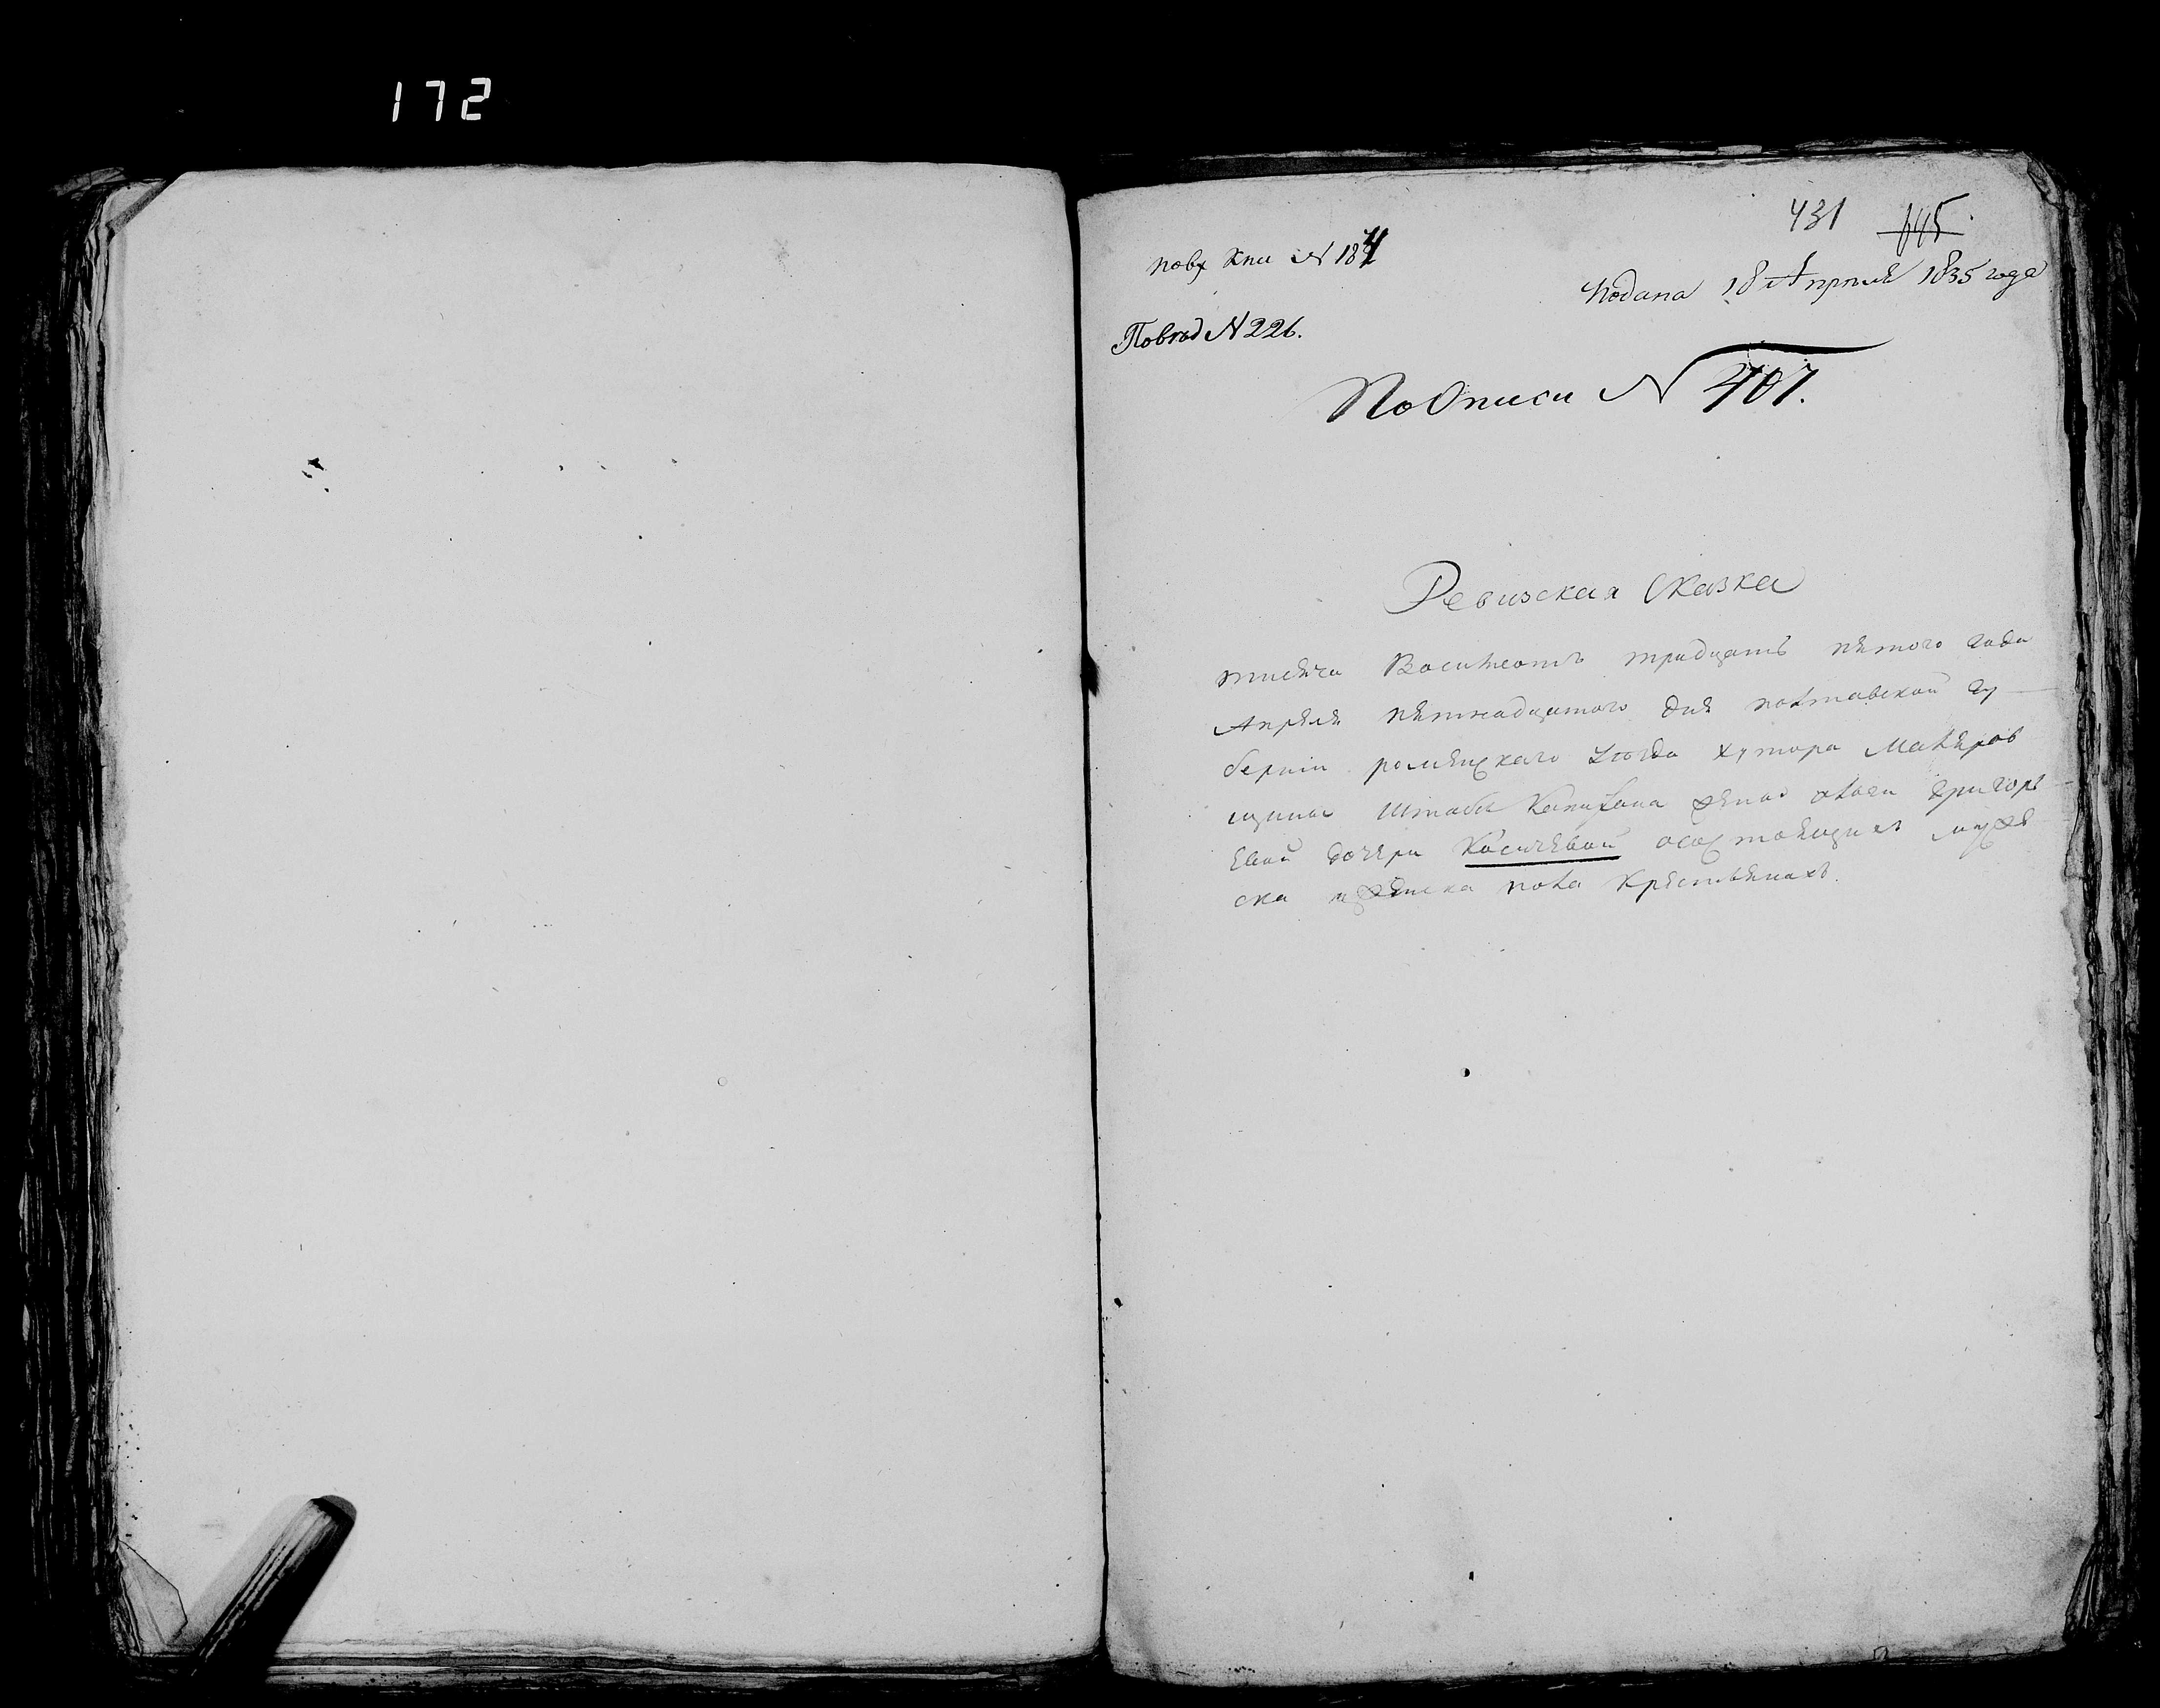 172
431 645
повх кни N 184
Подана 18 Апреля 1835 года
Повѣд N 226.
По Описи N 407.
Ревизская Сказка
тисяча Восимсотъ тридцать пятого года
Апреля пятнадцятого дня полтавской гу
берніи роменскаго уѣзда хутора Макеров
щины Штабъ Капитана жены
евой дочери Косичевой осостоящихъ муже
ска иженска пола Крестьянахъ.